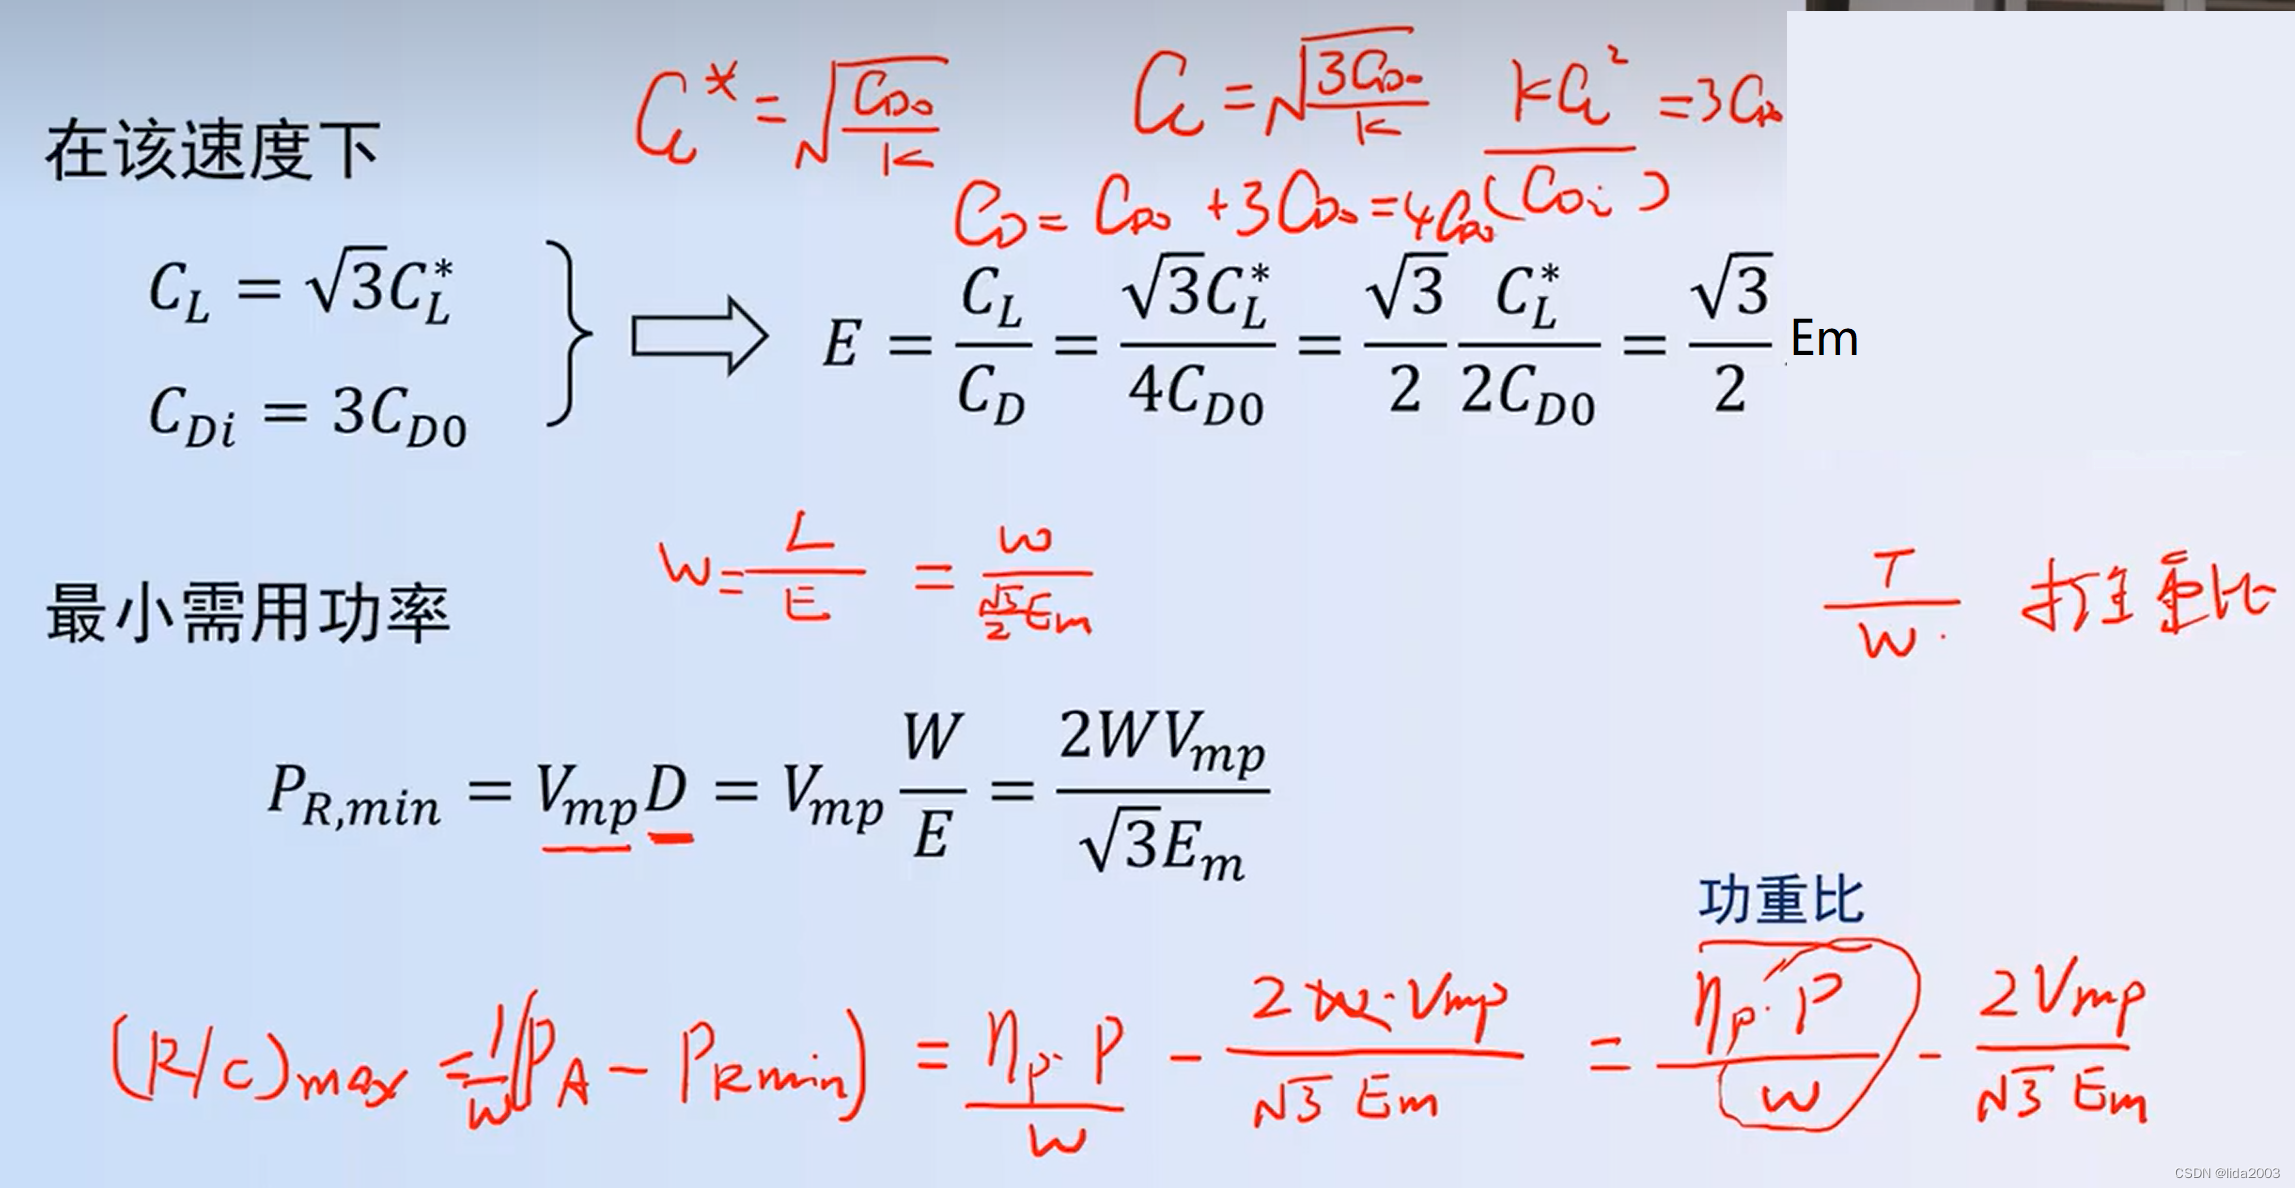 C_L* = √(C_D0/K)   C_L = √(3C_D0/K)   kC_L²/(C_Di) = 3C_D0
在该速度下
C_D = C_D0 + 3C_D0 = 4C_D0
C_L = √3C_L*
C_Di = 3C_D0
⇒ E = C_L/C_D = √3C_L*/4C_D0 = √3/2 C_L*/2C_D0 = √3/2 Em
W = L/E = W/(√3/2 Em)
T/W. 推重比
最小需用功率
P_R,min = V_mp D = V_mp W/E = 2WV_mp/√3E_m
功重比
(R/C)max = 1/W (P_A − P_Rmin) = η_p·P/W − 2W·Vmp/√3 Em = η_p·P/W − 2Vmp/√3 Em
CSDN @lida2003